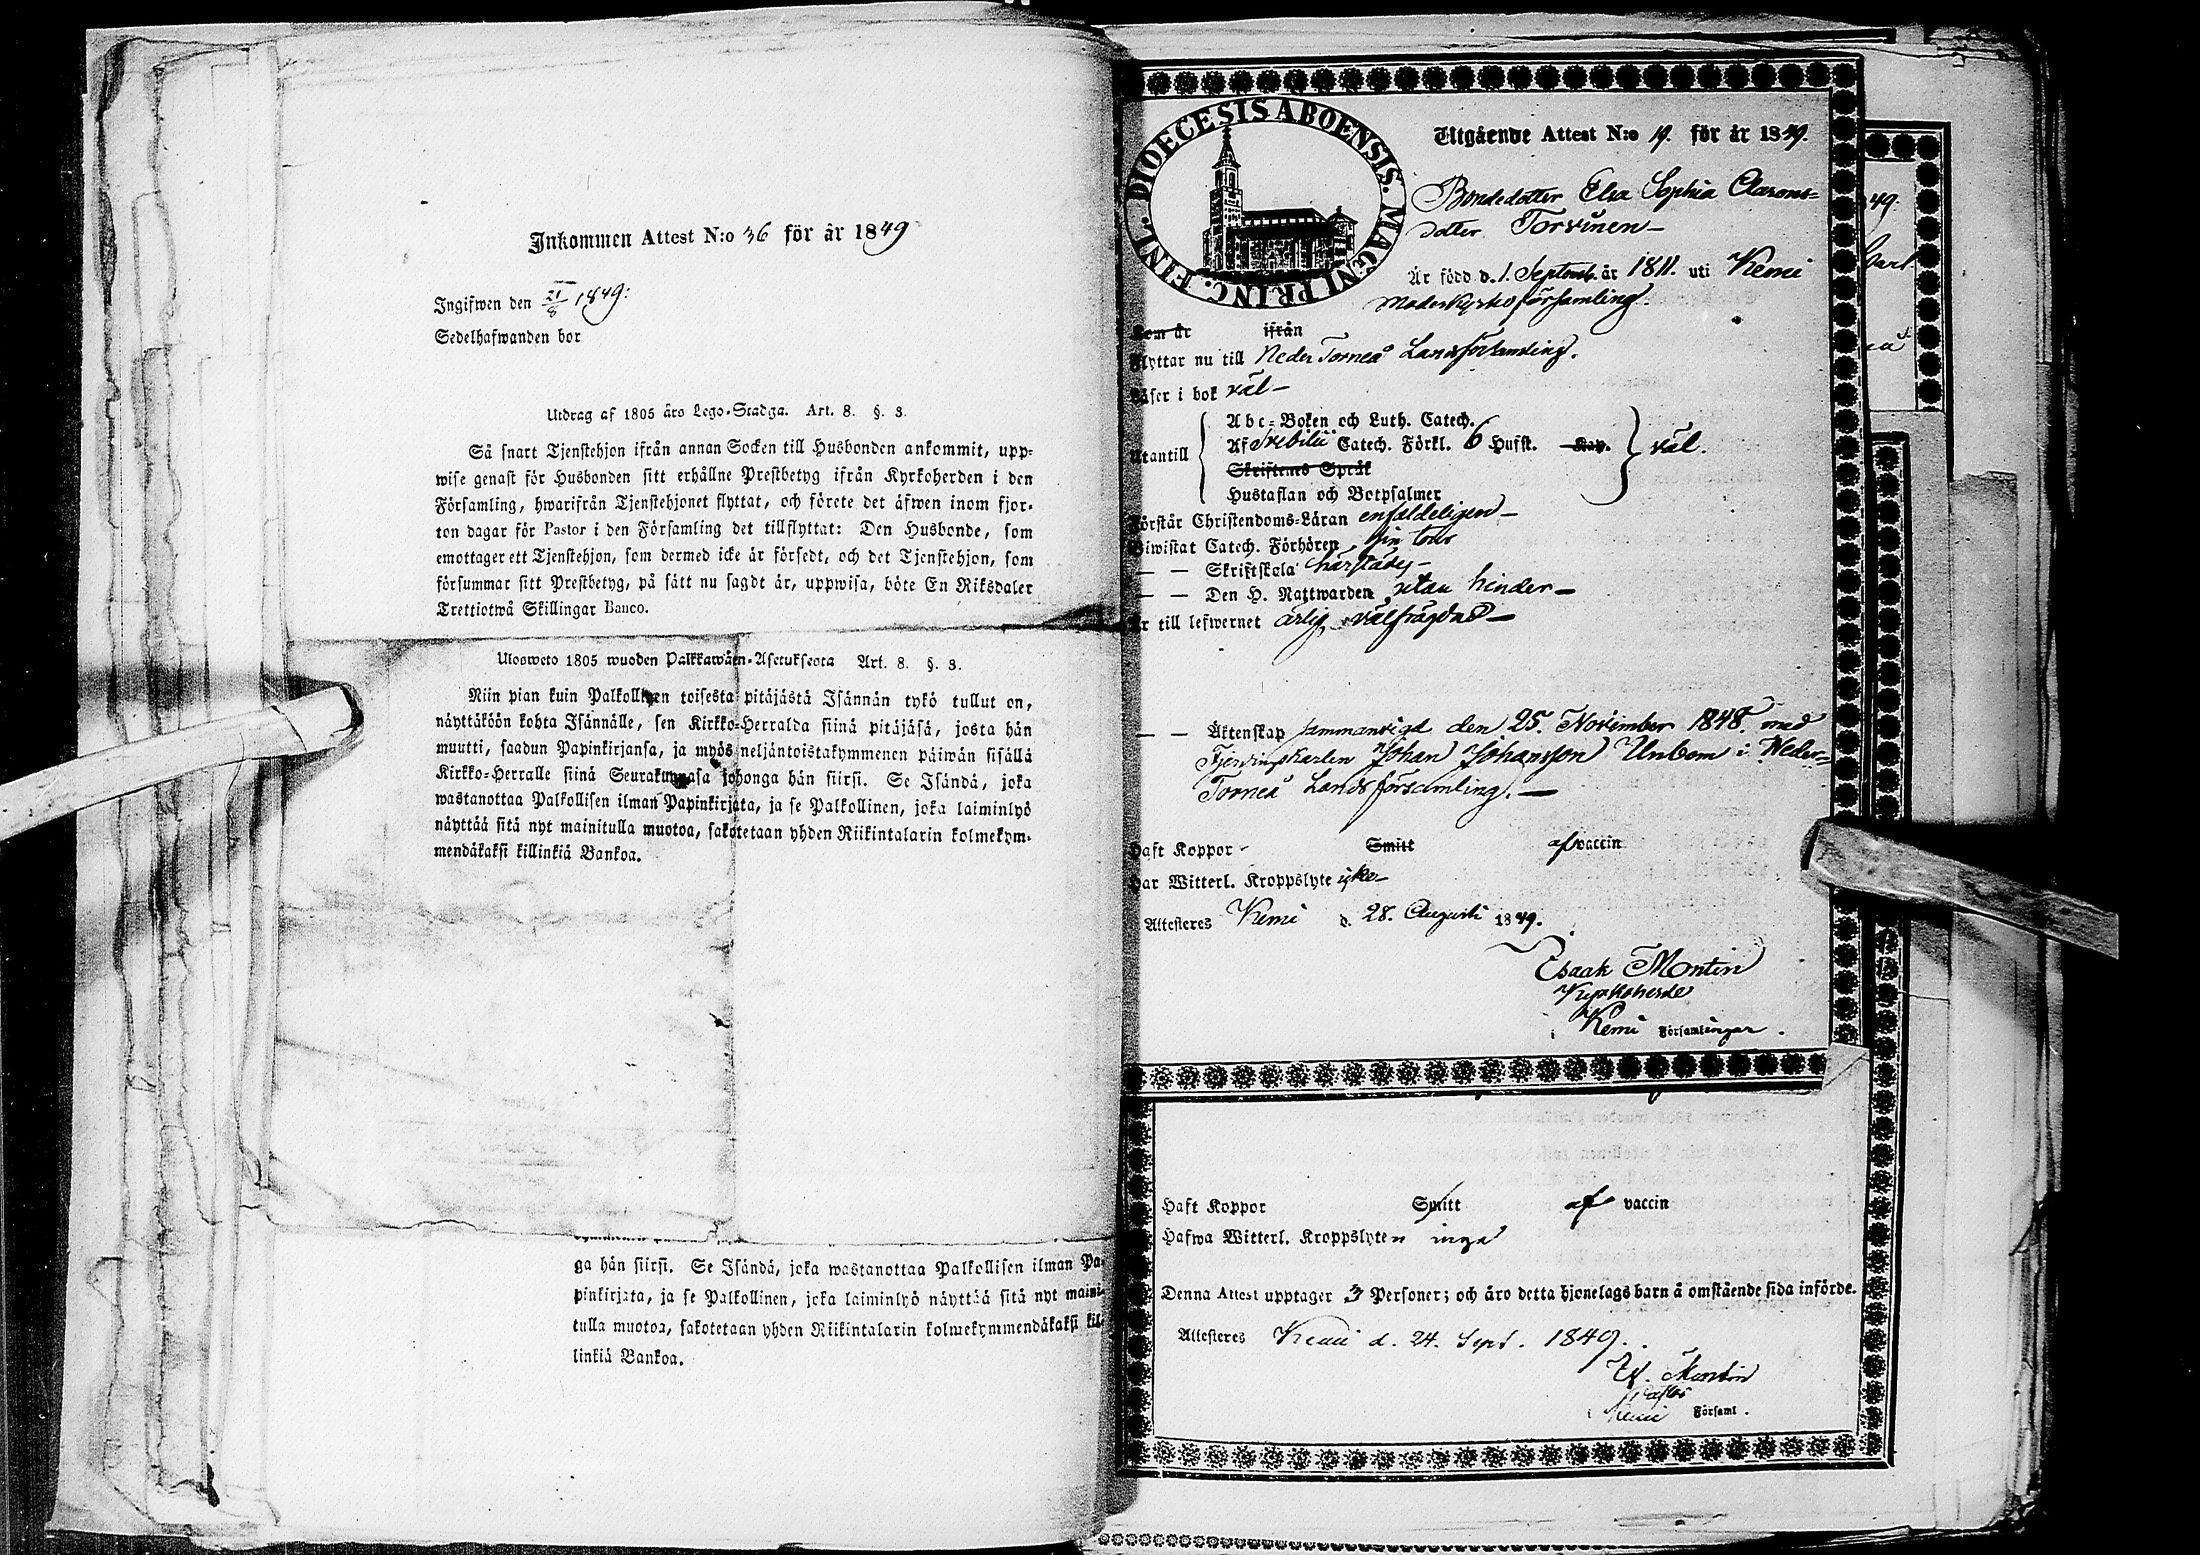 Inkommen Attest N:o 36 för år 1849
Ingifwen den 21/8 1849:
Sedelhafwanden bor
Utdrag af 1805 års Lego-Stadga. Art. 8. §. 3.
Så snart Tjenstehjon ifrån annan Socken till Husbonden ankommit, upp-
wise genast för Husbonden sitt erhållne Prestbetyg ifrån Kyrkoherden i den
Församling, hwarifrån Tjenstehjonet flyttat, och förete det äfwen inom fjor-
ton dagar för Pastor i den Församling det tillflyttat: Den Husbonde, som
emottager ett Tjenstehjon, som dermed icke är försedt, och det Tjenstehjon, som
försummar sitt Prestbetyg, på sätt nu sagdt är, uppwisa, böte En Riksdaler
Trettiotwå Skillingar Banco.
Ulosweto 1805 wuoden Palkkawäen-Asetuksesta Art. 8. §. 3.
Niin pian kuin Palkollinen toisesta pitäjästä Isännän tykö tullut on,
näyttäköön kohta Isännälle, sen Kirkko-Herralda siinä pitäjäsä, josta hän
muutti, saadun Papinkirjansa, ja myös neljäntoistakymmenen päiwän sisällä
Kirkko-Herralle siinä Seurakunnasa johonga hän siirsi. Se Isändä, joka
wastanottaa Palkollisen ilman Papinkirjata, ja se Palkollinen, joka laiminlyö
näyttää sitä nyt mainitulla muotoa, sakotetaan yhden Riikintalarin kolmekym-
mendäkaksi killinkiä Bankoa.
ga hän siirsi. Se Isändä, joka wastanottaa Palkollisen ilman Pa-
pinkirjata, ja se Palkollinen, joka laiminlyö näyttää sitä nyt maini-
tulla muotoa, sakotetaan yhden Riikintalarin kolmekymmendäkaksi kil-
linkiä Bankoa.
DIOECESIS ABOENSIS. MAGNI PRINC. FINL.
Utgående Attest N:o 19. för år 1849.
Bondedotter Elsa Sophia Clasons-
dotter Torvinen
Är född d. 1. Septemb. år 1811. uti Kemi
Moderkyrko församling.
Som är ifrån
Flyttar nu till Neder Torneå Landsförsamling.
Läser i bok väl
Utantill
Abc-Boken och Luth. Catech.
Af Svebilii Catech. Förkl. 6 Hufst. Kap.
Skriftenes Språk
Hustaflan och Botpsalmer
väl.
Förstår Christendoms-Läran enfaldeligen
Biwistat Catech. Förhören sin tour
— — Skriftskola härstädes
— — Den H. Nattwarden utan hinder
Är till lefwernet ärlig, välfrägdad
— — Äktenskap sammanvigd den 25. November 1848. med
Tjenningskarlen Johan Johansson Unbom i Neder-
Torneå Landsförsamling.
Haft Koppor Smitt af vaccin
Har Witterl. Kroppslyte icke
Attesteres Kemi d. 28. Augusti 1849.
Esaak Montin
Kyrkoherde
i Kemi Församlingar.
Haft Koppor Smitt af vaccin
Hafwa Witterl. Kroppslyten inga
Denna Attest upptager 3 Personer; och äro detta hjonelags barn å omstående sida införde.
Attesteres Kemi d. 24. Sept. 1849.
Es. Montin
Pastor
i Kemi Församl.
49.